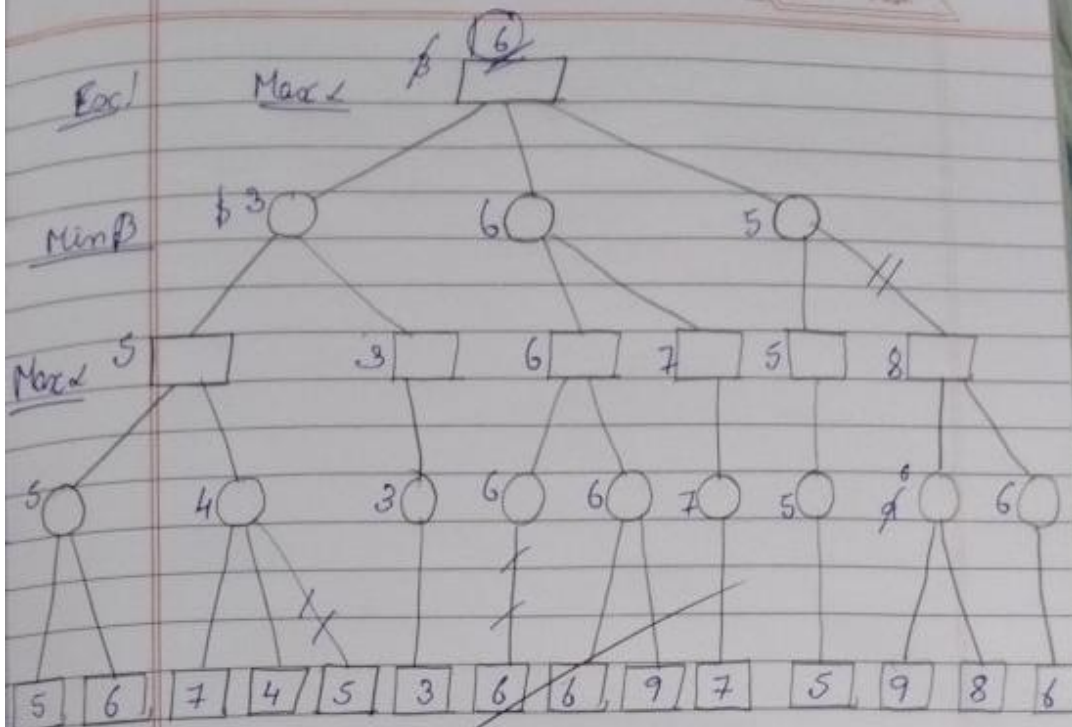 6
Ex1 Max α β
Min β 3 6 5
Max α 5 3 6 7 5 8
5 4 3 6 6 7 5 6 6
5 6 7 4 5 3 6 6 9 7 5 9 8 6